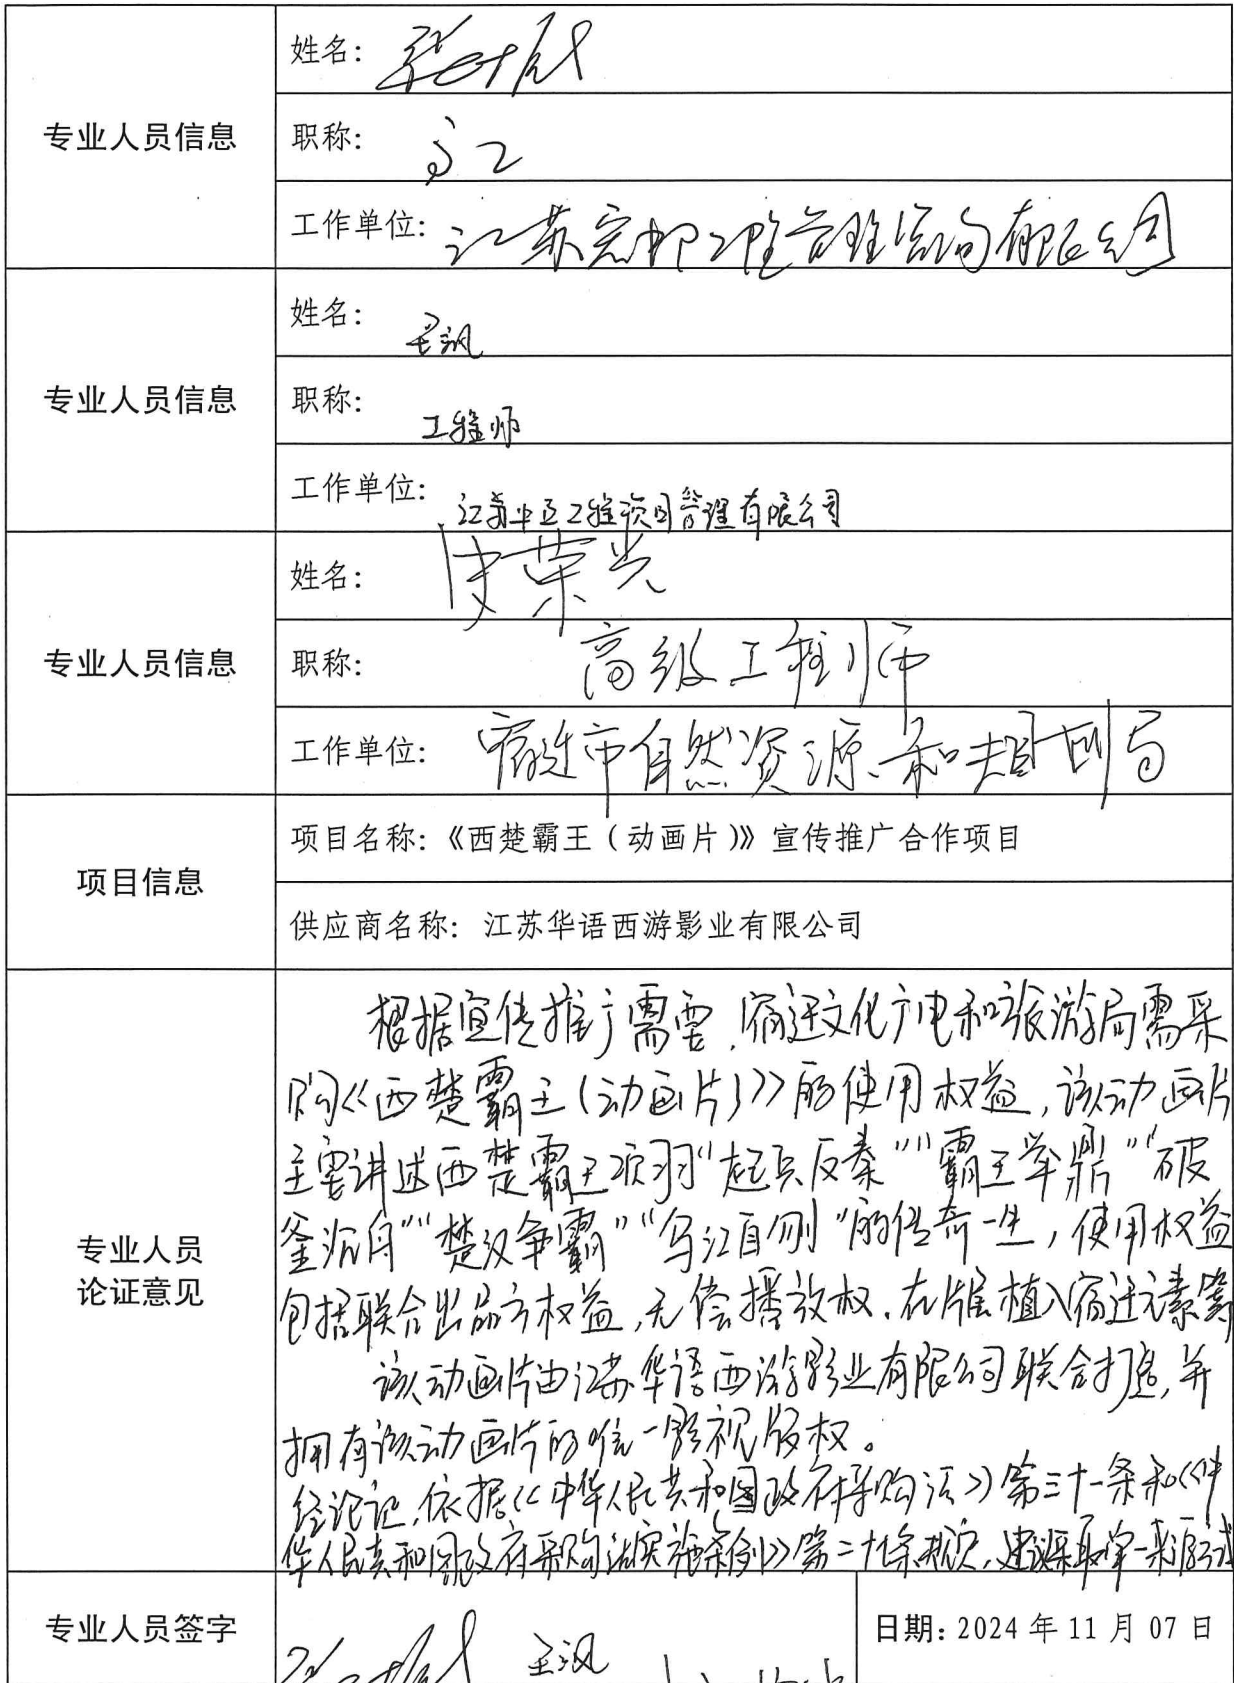 专业人员信息
姓名:
职称: 高工
工作单位: 江苏宏邦工程管理咨询有限公司
专业人员信息
姓名: 王飒
职称: 工程师
工作单位: 江苏中正工程项目管理有限公司
专业人员信息
姓名: 史荣光
职称: 高级工程师
工作单位: 宿迁市自然资源和规划局
项目信息
项目名称:《西楚霸王(动画片)》宣传推广合作项目
供应商名称: 江苏华语西游影业有限公司
专业人员
论证意见
根据宣传推广需要,宿迁文化广电和旅游局需采
购《西楚霸王(动画片)》的使用权益,该动画片
主要讲述西楚霸王项羽“起兵反秦”“霸王举鼎”“破
釜沉舟”“楚汉争霸”“乌江自刎”的传奇一生,使用权益
包括联合出品方权益,无偿播放权.在片尾植入宿迁元素等
该动画片由江苏华语西游影业有限公司联合打造,并
拥有该动画片的唯一影视版权。
经论证,依据《中华人民共和国政府采购法》第三十一条和《中
华人民共和国政府采购法实施条例》第二十七条规定,建议采取单一来源方式
专业人员签字
王飒
日期: 2024 年 11 月 07 日